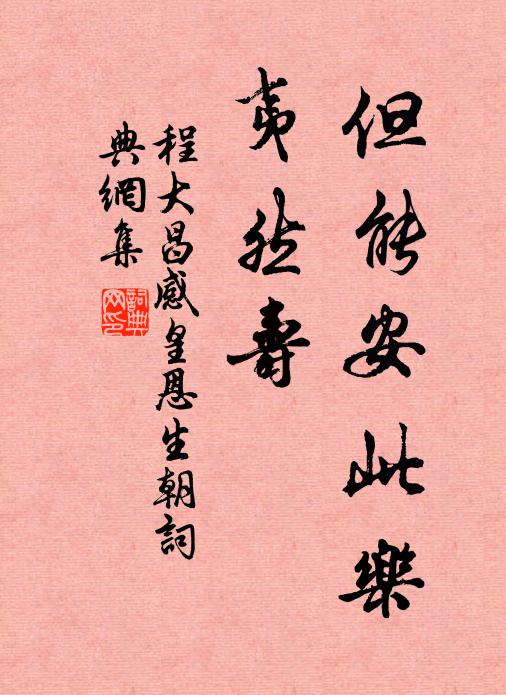 但能安此樂
夷然壽
程大昌感皇恩生朝詞
典網集
詞典网印